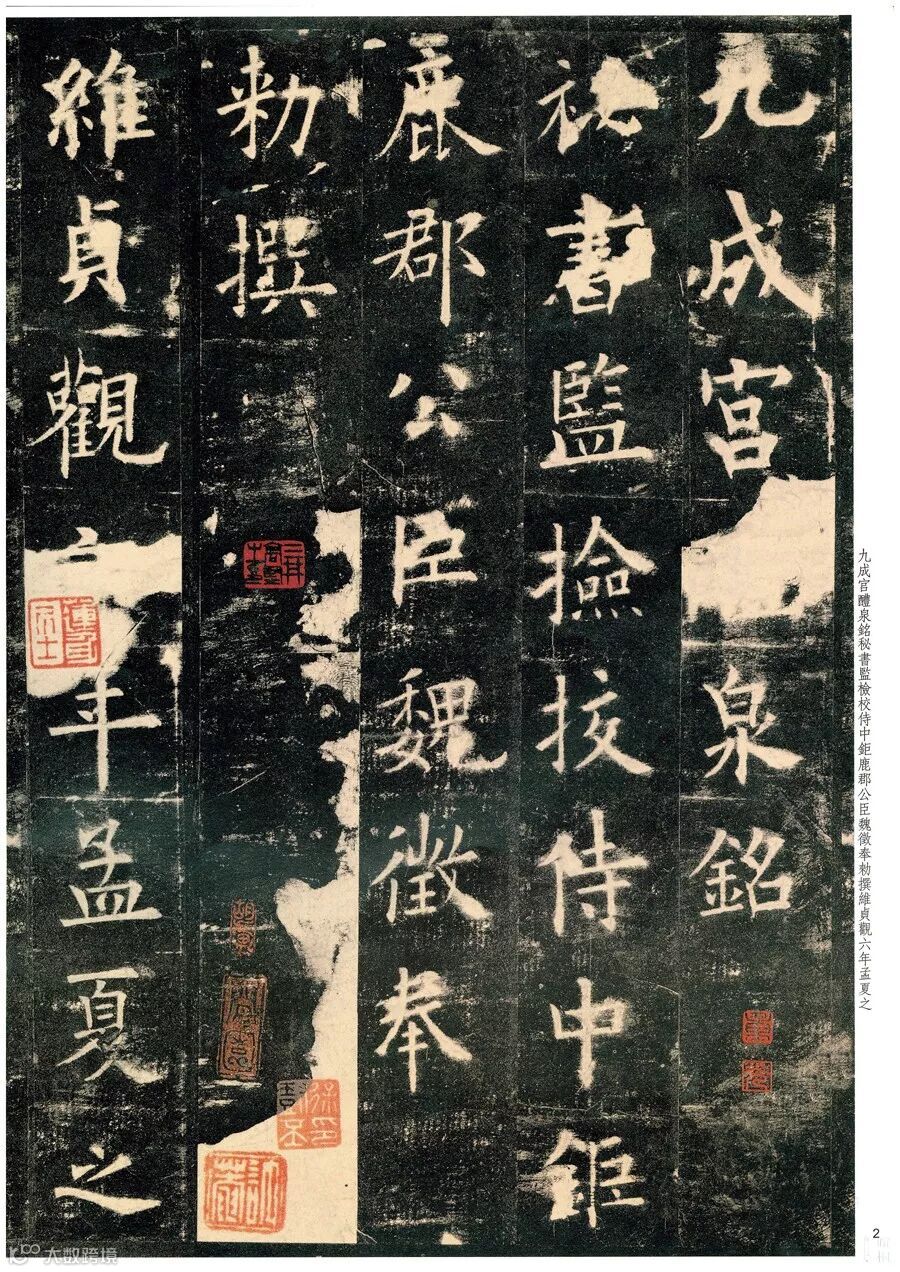 九成宮泉銘
祕書監撿挍侍中鉅
鹿郡公臣魏徵奉
勑撰
維貞觀六年孟夏之
九成宮醴泉銘秘書監檢校侍中鉅鹿郡公臣魏徵奉勑撰維貞觀六年孟夏之
2
大数跨境